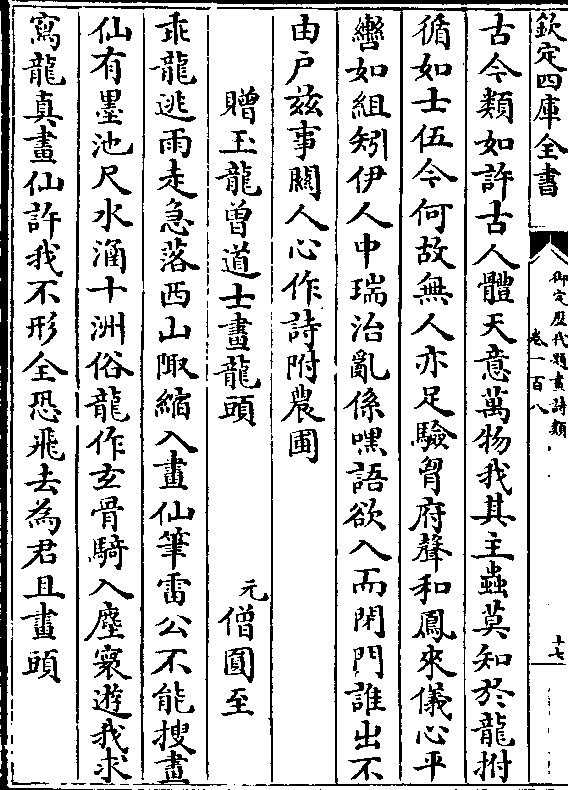 欽定四庫全書
御定歷代題畫詩類
卷一百八
十七
古今類如許古人體天意萬物我其主蟲莫知於龍拊
循如士伍今何故無人亦足驗胷府聲和鳳來儀心平
轡如組矧伊人中瑞治亂係嘿語欲入而閉門誰出不
由戶兹事關人心作詩附農圃
贈玉龍曾道士畫龍頭
元僧圓至
乖龍逃雨走急落西山陬縮入畫仙筆雷公不能搜畫
仙有墨池尺水涌十洲俗龍作玄骨騎入塵寰遊我求
寫龍真畫仙許我不形全恐飛去為君且畫頭